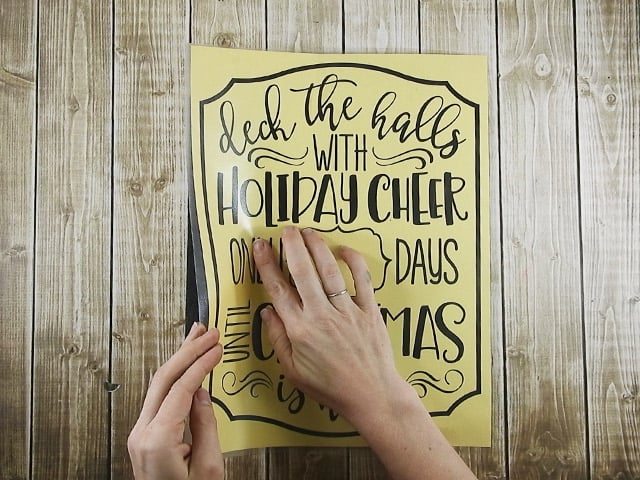 deck the halls
WITH
HOLIDAY CHEER
ONLY } DAYS
UNTIL C MAS
is